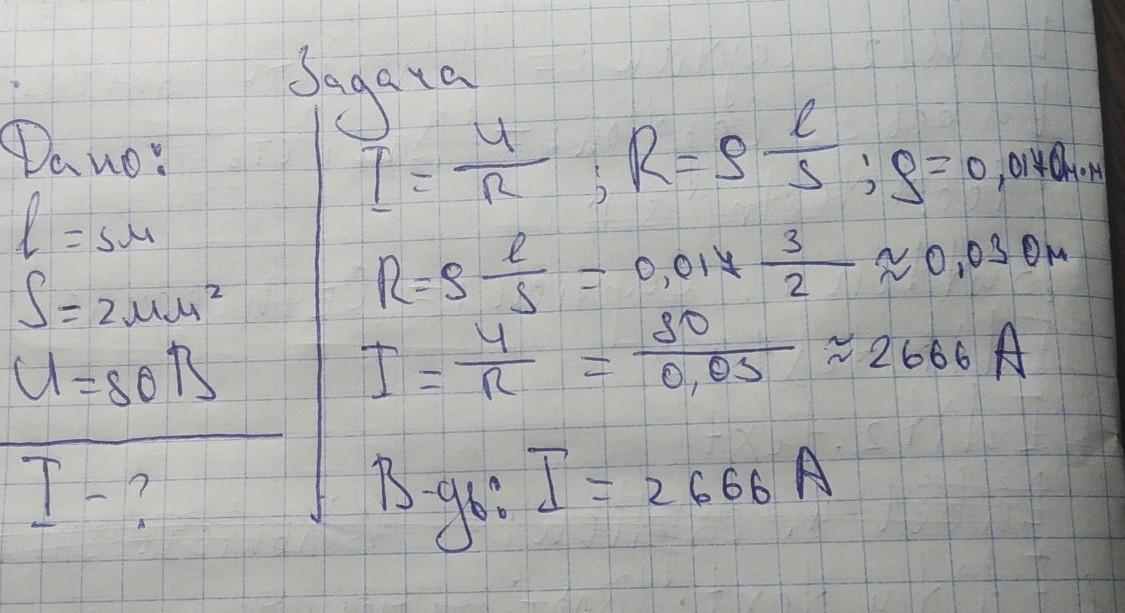 Задача
Дано:
l = 3м
S = 2мм²
U = 80 В
I - ?
I = U/R ; R = ρ l/S ; ρ = 0,017 Ом·м
R = ρ l/S = 0,017 3/2 ≈ 0,03 Ом
I = U/R = 80/0,03 ≈ 2666 А
В-дь: I = 2666 А